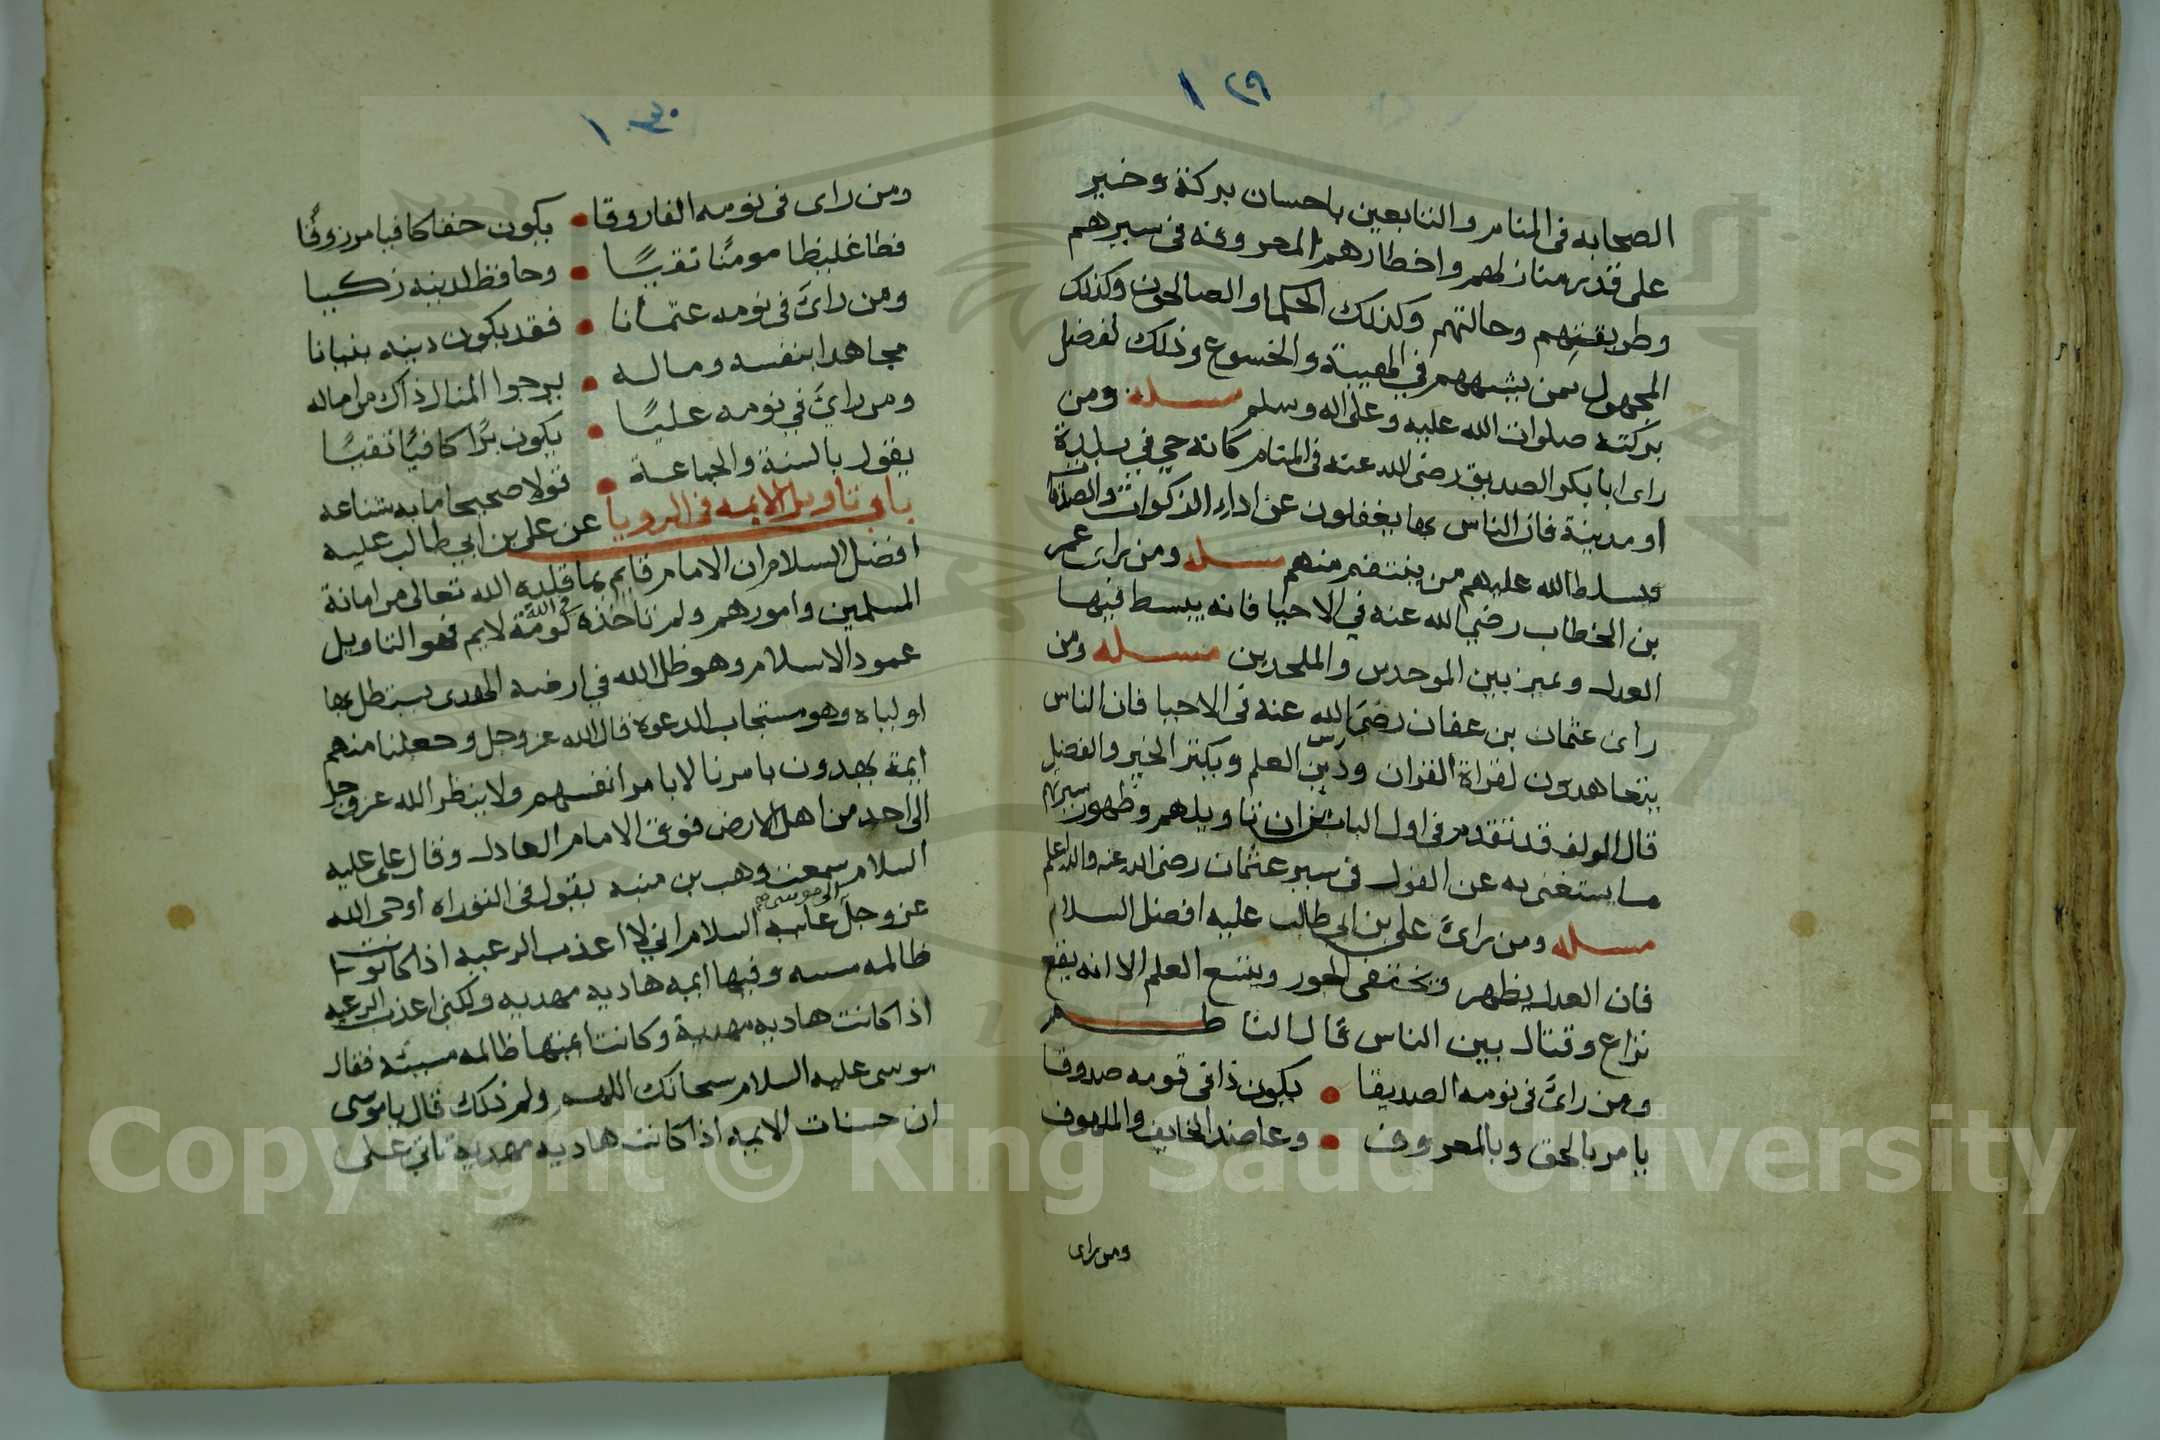 ١٢٩
الصحابه في المنام والتابعين باحسان بركة وخير
على قدر منازلهم واخطارهم المعروفه في سيرهم
وطريقتهم وحالتهم وكذلك الحكما والصالحون وكذلك
المجهول ممن يشبههم في الهيبة والخسوع وذلك لفضل
بركته صلوات الله عليه وعلى اله وسلم مسله ومن
راى ابا بكر الصديق رضى الله عنه في المنام كانه حي في بلدة
او مدينة فان الناس بها يغفلون عن اداء الزكوات والصدقات
ويسلط الله عليهم من ينتقم منهم مسله ومن راى عمر
بن الخطاب رضي الله عنه في الاحيا فانه يبسط فيها
العدل ويميز بين الموحدين والملحدين مسله ومن
راى عثمان بن عفان رضى الله عنه في الاحيا فان الناس
يتعاهدون لقراة القران ودرس العلم ويكثر الخير والفضل
قال المولف قد تقدم في اول الباب من ان تاويلهم وظهور سيرتهم
ما يستغنى به عن القول في سير عثمان رضى الله عنه والله اعلم
مسله ومن راى على بن ابي طالب عليه افضل السلام
فان العدل يظهر ويختفى الجور ويتسع العلم الا انه يقع
نزاع وقتال بين الناس قال لنا ظم
ومن راى في نومه الصديقا • يكون ذا في قومه صدوقا
يامر بالحق وبالمعروف • وعاضد الخايف والملهوف
ومن راى
١٣٠
ومن راى في نومه الفاروقا • يكون حقا كافيا مرزوقا
فظا غليظا مومنا تقيا • وحافظ لدينه زكيا
ومن راى في نومه عثمانا • فقد يكون دينه بنيانا
مجاهدا بنفسه وماله • يرجوا المنال ذاك من اماله
ومن راى في نومه عليا • يكون برا كافيا نقيا
يقول بالسنة والجماعة • قولا صحيحا ما به شناعه
باب تاويل الايمه في الرويا عن على بن ابي طالب عليه
افضل السلام ان الامام قايم بما قلده الله تعالى من امانة
المسلمين وامورهم ولم تاخذه في الله لومة لايم فهو التاويل
عمود الاسلام وهو ظل الله في ارضه المهدى يستظل بها
اولياه وهو مستجاب الدعوه قال الله عز وجل وجعلنا منهم
ايمة يهدون بامرنا لا بامر انفسهم ولا ينظر الله عز وجل
الى احد من اهل الارض فوق الامام العادل وقال على عليه
السلام سمعت وهب بن منبه يقول في التوراه اوحى الله
عز وجل الى موسى عليه السلام اني لا اعذب الرعيه اذا كانت
ظالمه مسيه وفيها ايمه هاديه مهديه ولكنى اعذب الرعيه
اذا كانت هاديه مهدية وكانت ايمتها ظالمه مسيئه فقال
موسى عليه السلام سبحانك اللهم ولم ذلك قال يا موسى
ان حسنات الايمه اذا كانت هاديه مهدية تاتي على
Copyright © King Saud University